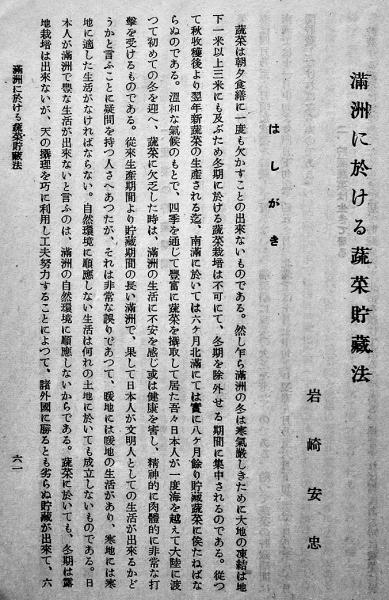 滿洲に於ける蔬菜貯藏法
岩崎安忠
はしがき
蔬菜は朝夕食膳に一度も欠かすことの出來ないものである。然し乍ら滿洲の冬は寒氣嚴しきために大地の凍結は地
下一米以上三米にも及ぶため冬期に於ける蔬菜栽培は不可にて、冬期を除外せる期間に集中されるのである。從つ
て秋收穫後より翌年新蔬菜の生產される迄、南滿に於いては六ヶ月北滿にては實に八ヶ月餘り貯藏蔬菜に俟たねばな
らぬのである。溫和な氣候のもとで、四季を通じて豐富に蔬菜を攝取して居た吾々日本人が一度海を越えて大陸に渡
つて初めての冬を迎へ、蔬菜に欠乏した時は、滿洲の生活に不安を感じ或は健康を害し、精神的に肉體的に非常な打
擊を受けるものである。從來生產期間より貯藏期間の長い滿洲で、果して日本人が文明人としての生活が出來るかど
うかと言ふことに疑問を持つ人さへあつたが、それは非常な誤りであつて、暖地には暖地の生活があり、寒地には寒
地に適した生活がなければならない。自然環境に順應しない生活は何れの土地に於いても成立しないものである。日
本人が滿洲で豐な生活が出來ないと言ふのは、滿洲の自然環境に順應しないからである。蔬菜に於いても、冬期は露
地栽培は出來ないが、天の攝理を巧に利用し工夫努力することによつて、諸外國に勝るとも劣らぬ貯藏が出來て、六
滿洲に於ける蔬菜貯藏法
六一